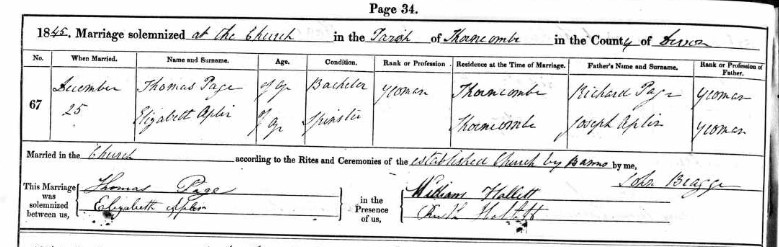 Page 34.
1845. Marriage solemnized at the Church in the Parish of Thorncombe in the County of Devon
No. When Married. Name and Surname. Age. Condition. Rank or Profession. Residence at the Time of Marriage. Father's Name and Surname. Rank or Profession of Father.
67 December 25 Thomas Page of age Bachelor yeoman Thorncombe Richard Page yeoman
Elizabeth Aplin of age Spinster Thorncombe Joseph Aplin yeoman
Married in the Church according to the Rites and Ceremonies of the established Church by Banns by me,
John Bragge
This Marriage was solemnized between us, Thomas Page Elizabeth Aplin in the Presence of us, William Hallett Ruth